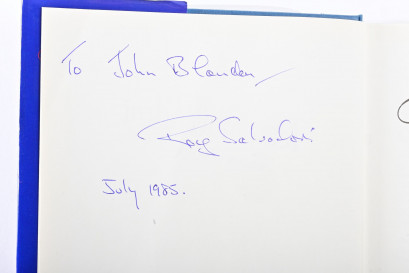 To John Blunden
Roy Salvadori
July 1985.